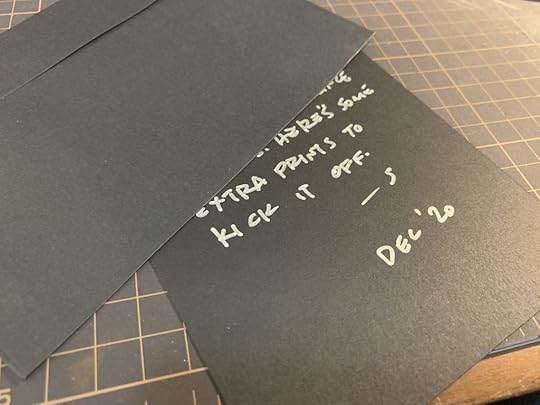 HERE'S SOME
EXTRA PRINTS TO
KICK IT OFF.
— S
DEC '20
5